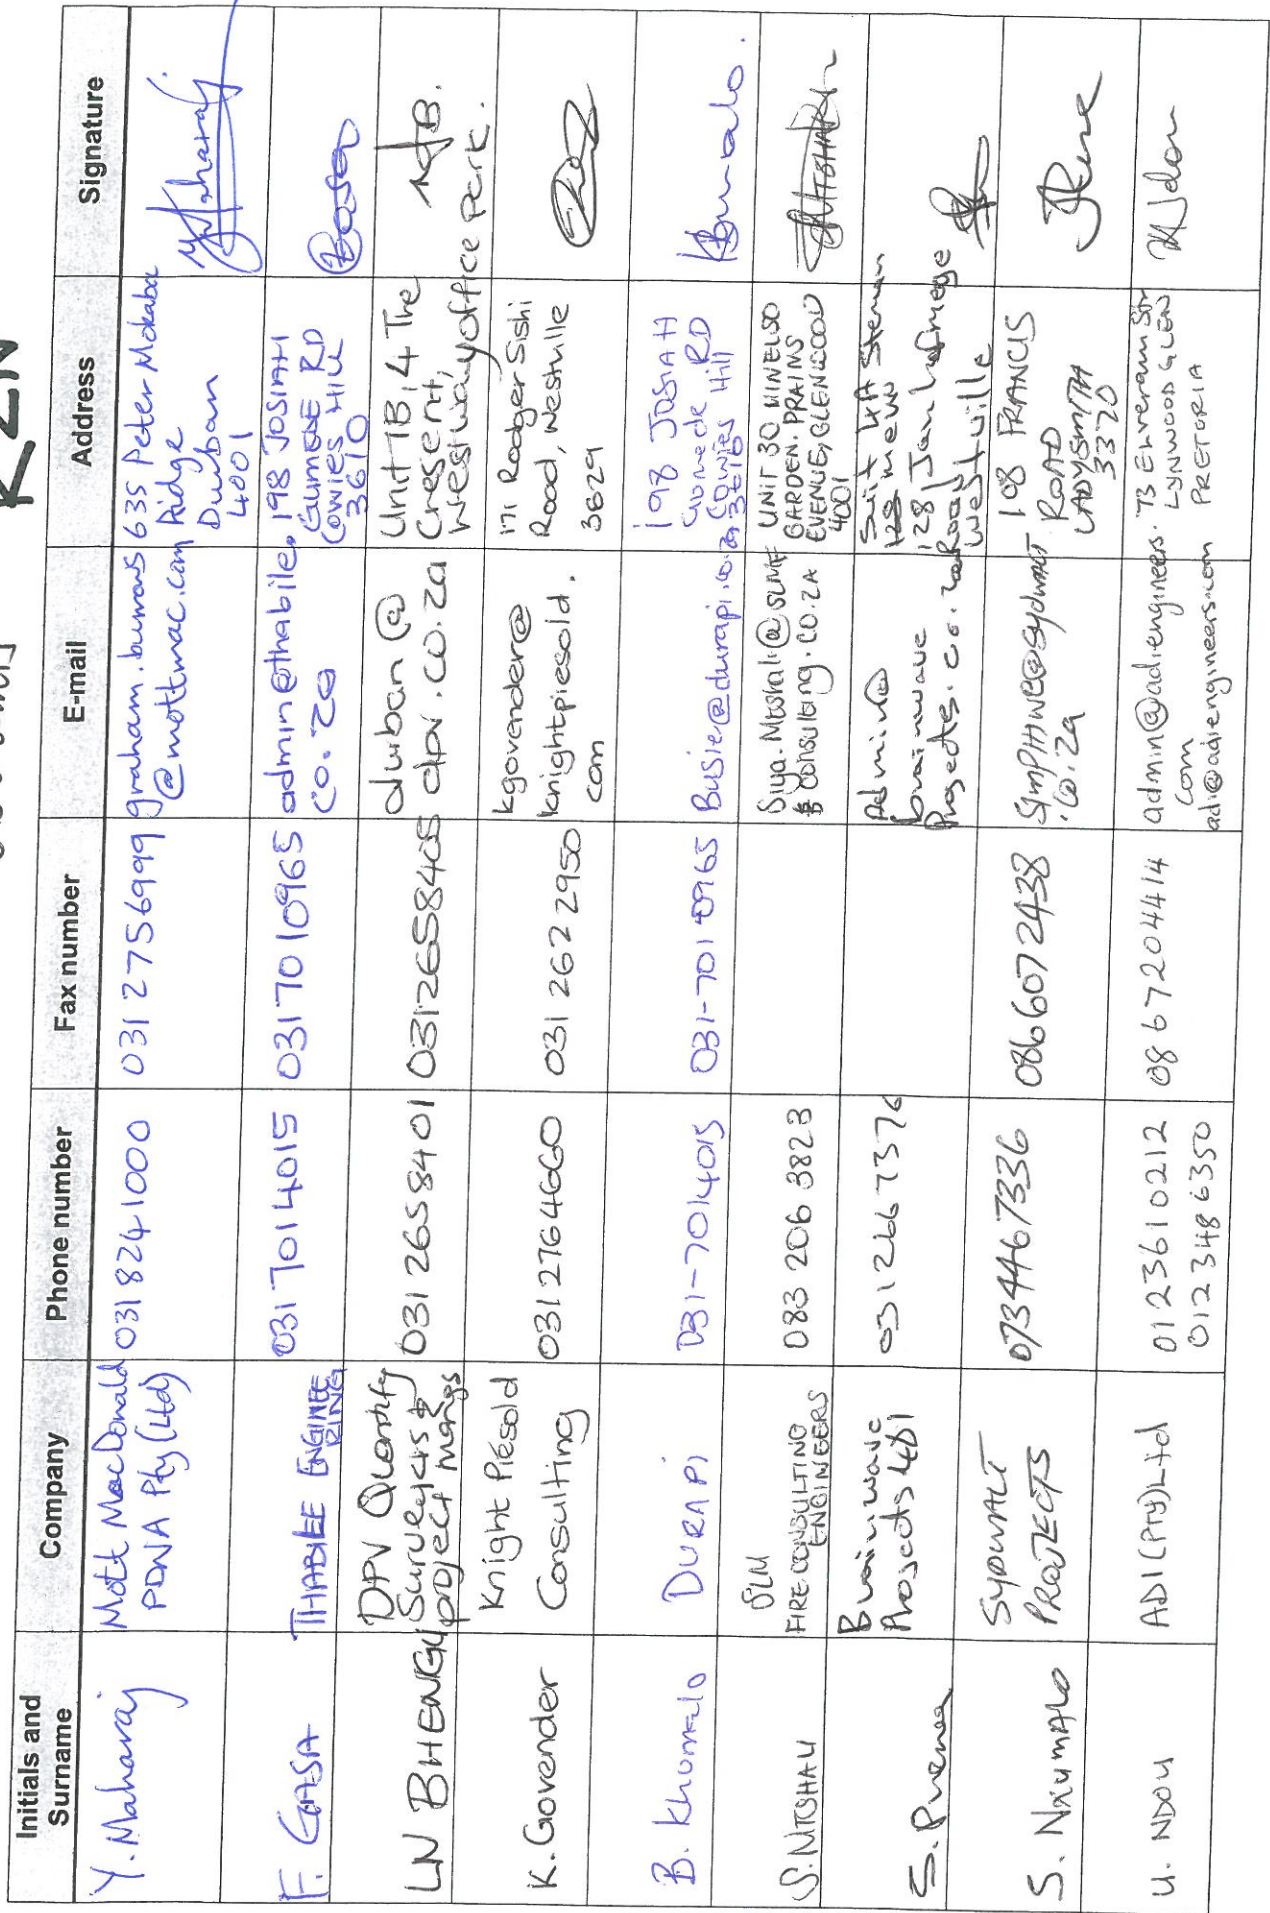 KZN
Initials and
Surname
Company
Phone number
Fax number
E-mail
Address
Signature
Y. Maharaj
Mott MacDonald
PDNA Pty (Ltd)
031 8241000
031 2756999
graham.burrows
@mottmac.com
635 Peter Mokaba
Ridge
Durban
4001
F. GASA
THABILE ENGINEE
RING
031 7014015
031 7010965
admin@thabile.
co.za
198 JOSIAH
GUMEDE RD
COWIES HILL
3610
LN BHENGU
DPV Quantity
Surveyors &
project mangs
031 2658401
0312658405
durban@
dpv.co.za
Unit 7B, 4 The
Cresent,
Westway office park.
K. Govender
Knight Piésold
Consulting
031 2764660
031 262 2950
kgovender@
knightpiesold.
com
171 Rodger Sishi
Road, Westville
3629
B. Khumalo
DURAPI
031-7014015
031-701 0965
Busie@durapi.co.za
198 JOSIAH
Gumede RD
Cowies Hill
3610
Khumalo.
S. MTSHALI
SLM
FIRE CONSULTING
ENGINEERS
083 206 3823
Siya.Mtshali@SLMF
consulting.co.za
UNIT 30 WINELSO
GARDEN, PRAINS
EVENUE, GLENWOOD
4001
MTSHALI
S.
Brainwave
Projects 461
031 266 7376
Admin@
brainwave
Projects.co.za
Suit 4A
128 Jan Hofmeye
Road
Westville
S. NXUMALO
SYDWALT
PROJECTS
0734467336
0866072438
SIMPHIWE@Sydwalt
.co.za
108 FRANCIS
ROAD
LADYSMITH
3370
U. NDOU
ADI (Pty) Ltd
012 361 0212
012 348 6350
086 7204414
admin@adiengineers.
com
adi@adiengineers.com
73
LYNWOOD GLEN
PRETORIA